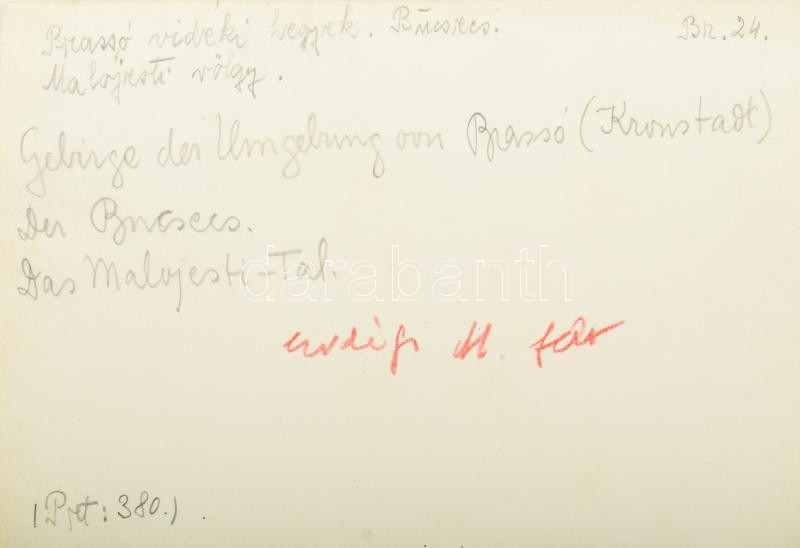 Brassó vidéki hegyek. Búcsecs. Br. 24.
Malojesti völgy.
Gebirge der Umgebung von Brassó (Kronstadt)
Der Bucsecs.
Das Malojesti-Tal.
darabanth
erdélyi M. fot
(Pjt: 380.)